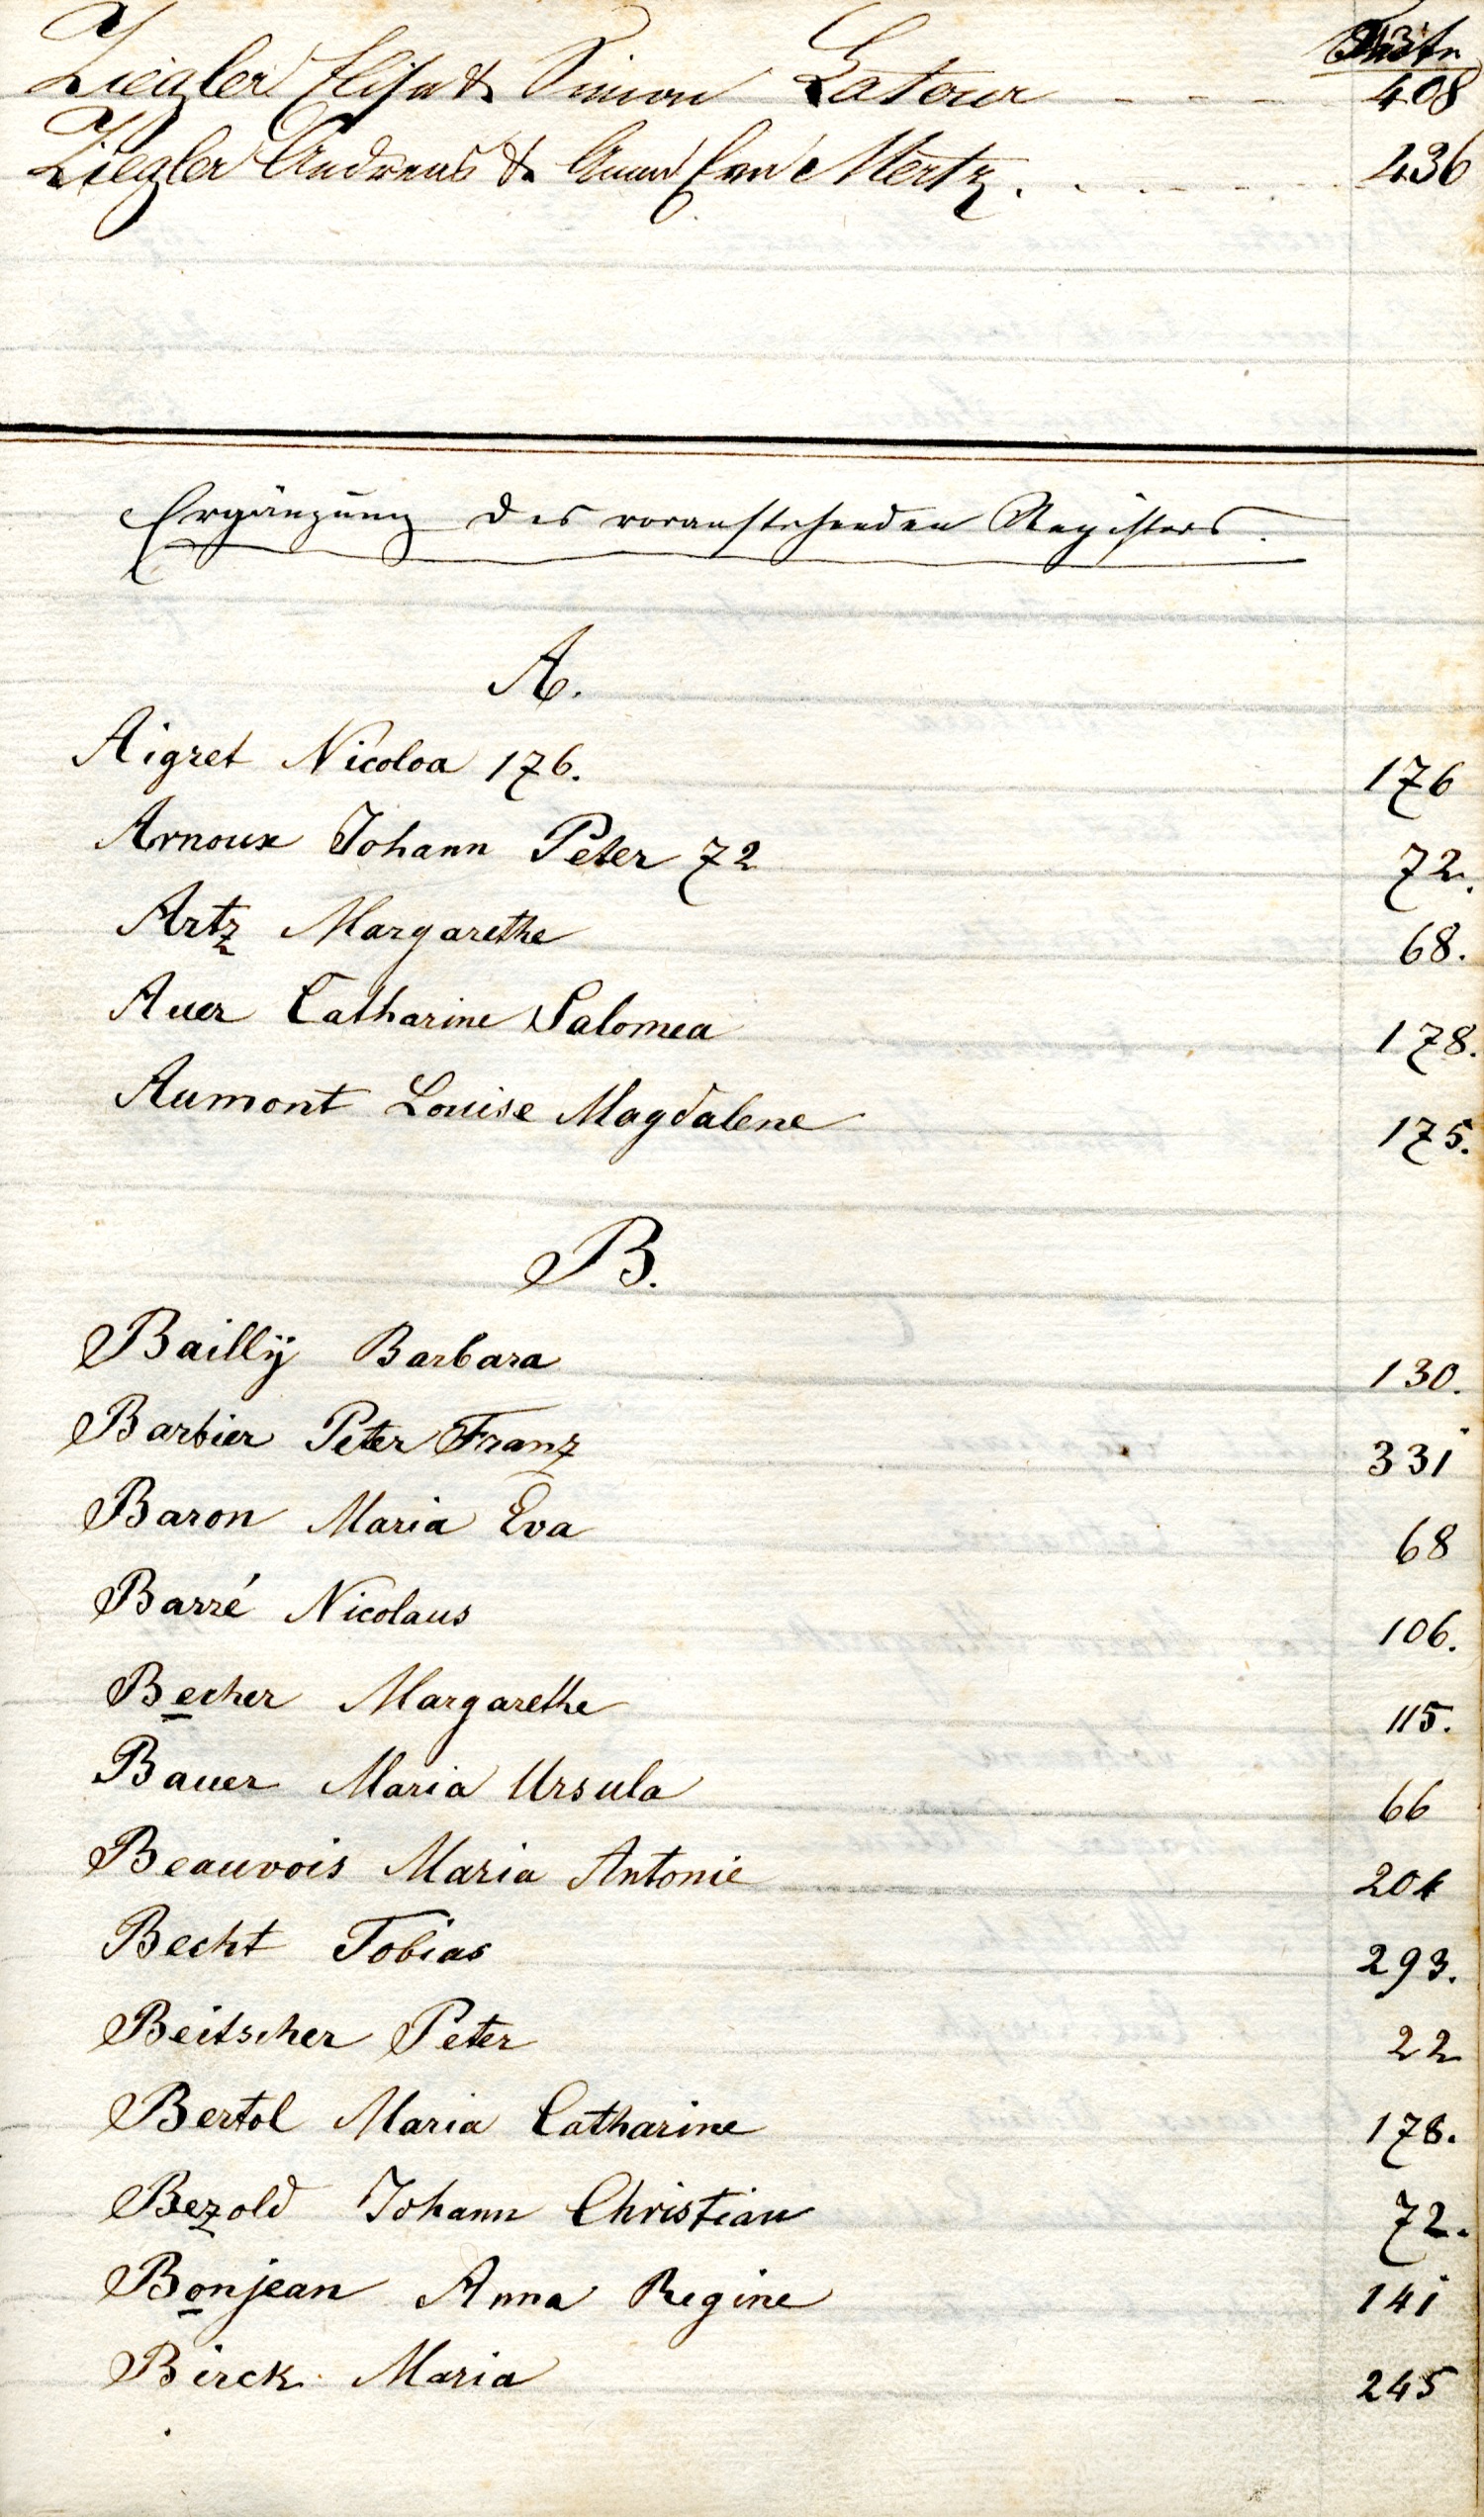 Seite
Ziegler Elisa & Simon Latour - - - 408
Ziegler Andreas & Anna Eva Mertz . . - - - - 436
Ergänzung des voranstehenden Registers.
A.
Aigret Nicoloa 176. 176
Arnoux Johann Peter 72 72.
Artz Margarethe 68.
Auer Catharine Salomea 178.
Aumont Louise Magdalene 175.
B.
Baillÿ Barbara 130.
Barbier Peter Franz 331
Baron Maria Eva 68
Barré Nicolaus 106.
Becher Margarethe 115.
Bauer Maria Ursula 66
Beauvois Maria Antonie 204
Becht Tobias 293.
Beitscher Peter 22
Bertol Maria Catharine 178.
Bezold Johann Christian 72.
Bonjean Anna Regine 141
Birck Maria 245